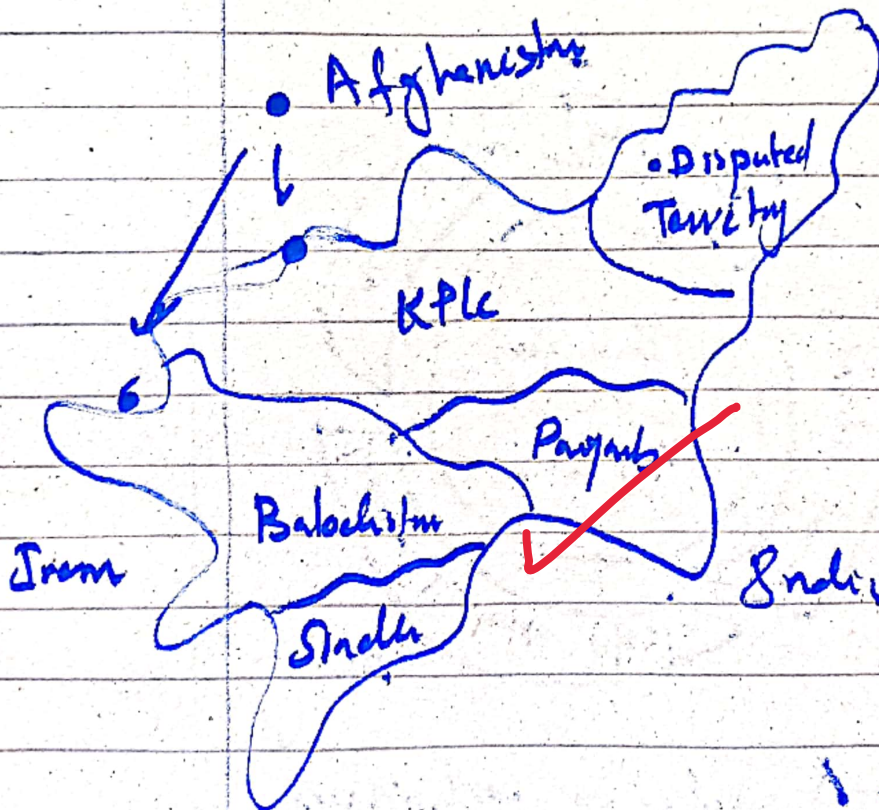 Afghanistan
• Disputed
Territory
KPK
Punjab
Balochistan
Iran
Indi
Sindh